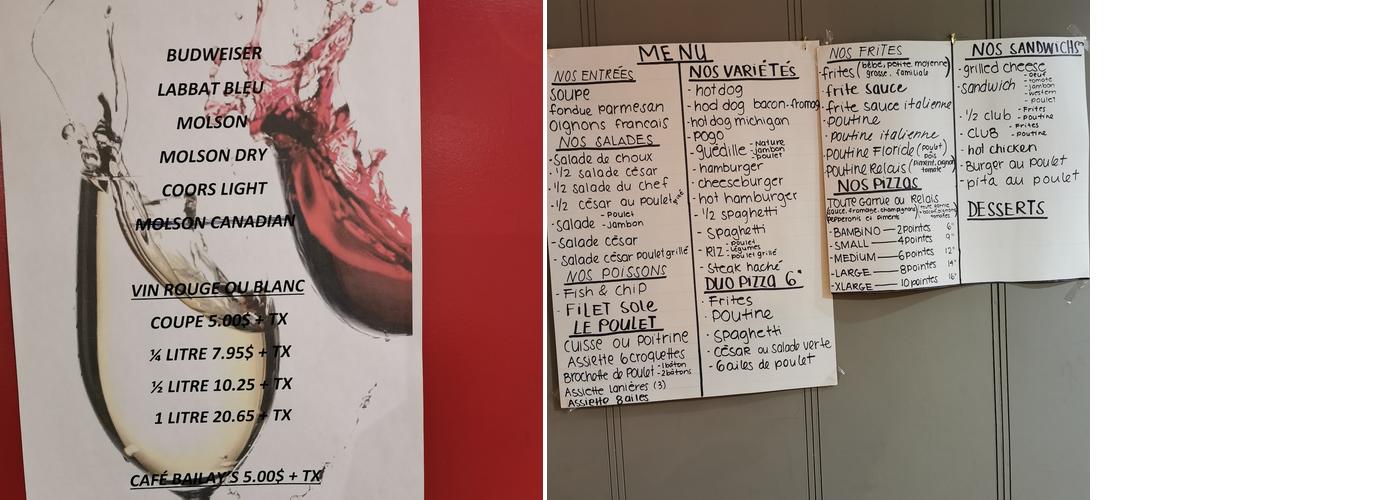 BUDWEISER
LABBAT BLEU
MOLSON
MOLSON DRY
COORS LIGHT
MOLSON CANADIAN
VIN ROUGE OU BLANC
COUPE 5.00$ + TX
¼ LITRE 7.95$ + TX
½ LITRE 10.25 + TX
1 LITRE 20.65 + TX
CAFÉ BAILAY'S 5.00$ + TX
MENU
NOS ENTRÉES
soupe
fondue parmesan
Oignons francais
NOS SALADES
- Salade de choux
- 1/2 salade césar
- 1/2 salade du chef
- 1/2 césar au poulet
- salade - Poulet
- Jambon
- Salade césar
- Salade césar poulet grillé
NOS POISSONS
- Fish & chip
- FiLET SOLE
LE POULET
Cuisse ou Poitrine
Assiette 6 croquettes
Brochette de Poulet - 1 bâton
- 2 bâtons
Assiette Lanières (3)
Assiette 8 ailes
NOS VARIÉTÉS
- hotdog
- hod dog bacon-fromag.
- hotdog michigan
- pogo
- guédille - Nature
- jambon
- poulet
- hamburger
- cheeseburger
- hot hamburger
- 1/2 spaghetti
- Spaghetti
- RIZ - poulet
- Légumes
- poulet grillé
- Steak haché
DUO PIZZA 6"
- Frites
- Poutine
- Spaghetti
- CÉSAR ou salade verte
- 6 ailes de poulet
NOS FRITES
- frites (bébé, petite, moyenne)
grosse, familiale
- frite sauce
- frite sauce italienne
- poutine
- poutine italienne
- poutine Floride (poulet)
pois
- poutine Relais (piment, oignon
tomate)
NOS PIZZAS
TOUTE Garnie ou Relais
(sauce, fromage, champignons
pepperonis et piments)
- BAMBINO — 2 pointes 6"
- SMALL — 4 pointes 9"
- MEDIUM — 6 pointes 12"
- LARGE — 8 pointes 14"
- XLARGE — 10 pointes 16"
NOS SANDWICHS
- grilled cheese
- sandwich - oeuf
- tomate
- jambon
- western
- poulet
- 1/2 club - Frites
- Poutine
- CLUB - Frites
- poutine
- hot chicken
- Burger au poulet
- pita au poulet
DESSERTS